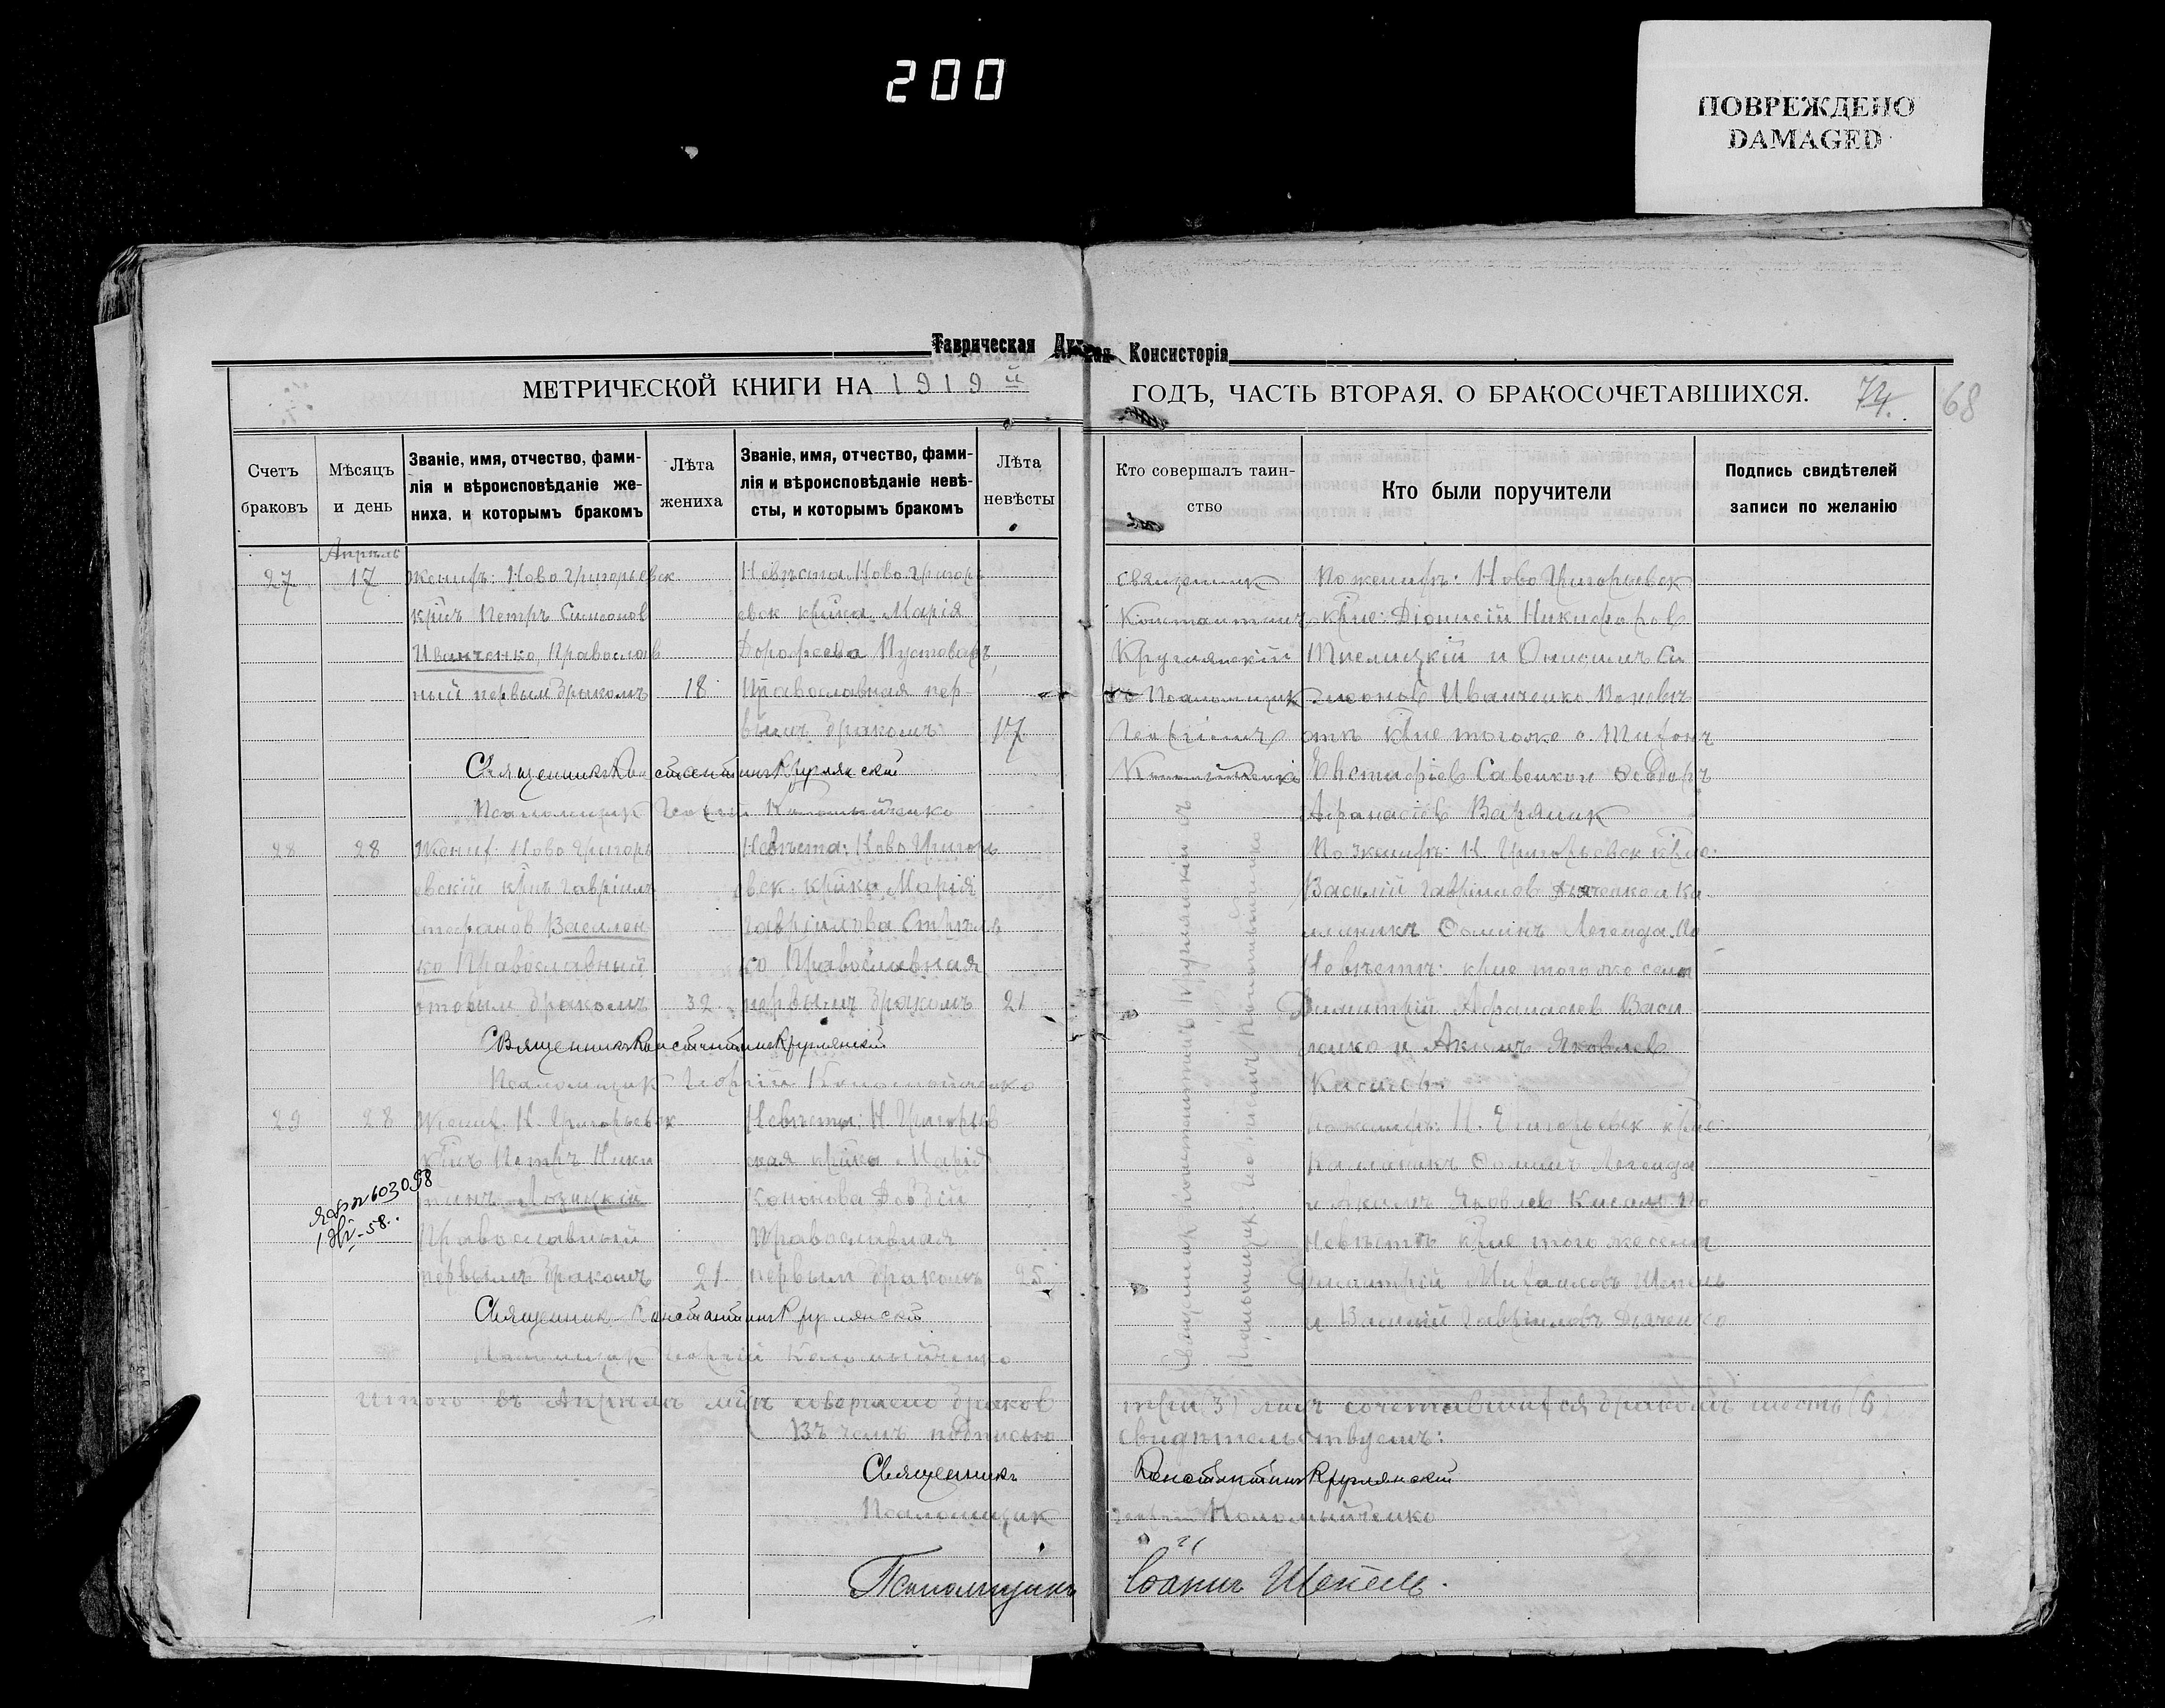 200
ПОВРЕЖДЕНО
DAMAGED
Таврическая Консисторія
МЕТРИЧЕСКОЙ КНИГИ НА 1919 й ГОДЪ, ЧАСТЬ ВТОРАЯ. О БРАКОСОЧЕТАВШИХСЯ. 74. 68
Счетъ
браковъ
Мѣсяцъ
и день
Званіе, имя, отчество, фами-
лія и вѣроисповѣданіе же-
ниха, и которымъ бракомъ
Лѣта
жениха
Званіе, имя, отчество, фами-
лія и вѣроисповѣданіе невѣ-
сты, и которымъ бракомъ
Лѣта
невѣсты
Кто совершалъ таин-
ство
Кто были поручители
Подпись свидѣтелей
записи по желанію
Апрѣль
27
17
Женихъ: Ново Григорьевск
крнъ Петръ Симеонов
Иванченко, Православ
ный первым бракомъ
18
Невѣста: Ново Григорь
евск крйка Марія
Дорофеева
Православная пер
вымъ бракомъ
17
Священник
Константинъ
Круглянскій
и Псаломщик
Георгій
По женихѣ: Ново Григорьевск
крне: Діонисій Никифоров
и Онисимъ Си
меонов Иванченко. По невѣ
стѣ крне того же с. Тихонъ
Евстафіев Савенко и Ѳеодоръ
Афанасіев Варяник
Священникъ Константинъ Круглянскій
Псаломщик Георгій Коломыйченко
28
28
Жених: Ново Григорь
евскій крнъ Гавріилъ
Стефанов Василен
ко Православный
вторым бракомъ
32
Невѣста: Ново Григорь
евск. крйка Марія
Гавріилова
ко Православная
первымъ бракомъ
21
По женихѣ: Н. Григорьевск крне:
Василій Гавріилов Дяченко и Ка
линикъ Ѳоминъ Легенда. По
Невѣстѣ: крне того же села
Димитрій Афанасіев Васи
ленко и Акимъ Яковлев
Священникъ Константинъ Круглянскій
Псаломщик Георгій Коломыйченко
29
28
Жених: Н. Григорьевск
крнъ Петръ Ники
тинъ Лозицкій
Православный
первымъ бракомъ
21.
Невѣста: Н. Григорьев
ская крйка Марія
Кононова
Православная
первым бракомъ
25
По женихѣ: Н. Григорьевск крне:
Калиникъ Ѳоминъ Легенда
и Акимъ Яковлев По
Невѣстѣ крне того же села
Димитрій Михайловъ Шепель
и Василій Гавріиловъ Дяченко
Священник Константинъ Круглянскій
Псаломщик Георгій Коломыйченко
603098
58.
Священник Константинъ Круглянскій
Псаломщик Георгій Коломыйченко
Итого въ Апрѣлѣ мцѣ совершено браков три (3) лицъ сочетавшихся бракомъ шесть (6)
Въ чемъ подписью свидѣтельствуемъ:
Священникъ Константинъ Круглянскій
Псаломщик Георгій Коломыйченко
Псаломщикъ Іоаннъ Шепель.